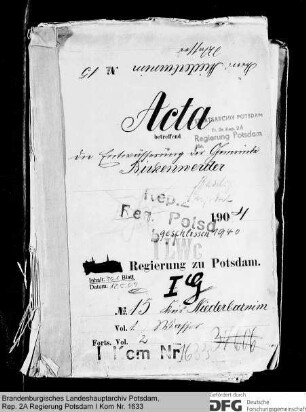 Kreis Niederbarnim № 15
Wasser
Acta
betreffend
STAATSARCHIV POTSDAM
Pr. Br. Rep. 2A
Regierung Potsdam
die Entwässerung der Gemeinde
Birkenwerder
Rep. 2
Reg. Potsd
1904
geschlossen 1940
Regierung zu Potsdam.
Blatt
Datum:
I
№ 15 Kreis Niederbarnim
Vol. 1 Wasser
Forts. Vol. 2
I Kom Nr 1633
Brandenburgisches Landeshauptarchiv Potsdam,
Rep. 2A Regierung Potsdam I Kom Nr. 1633
Gefördert durch
DFG
Deutsche
Forschungsgemeinschaft